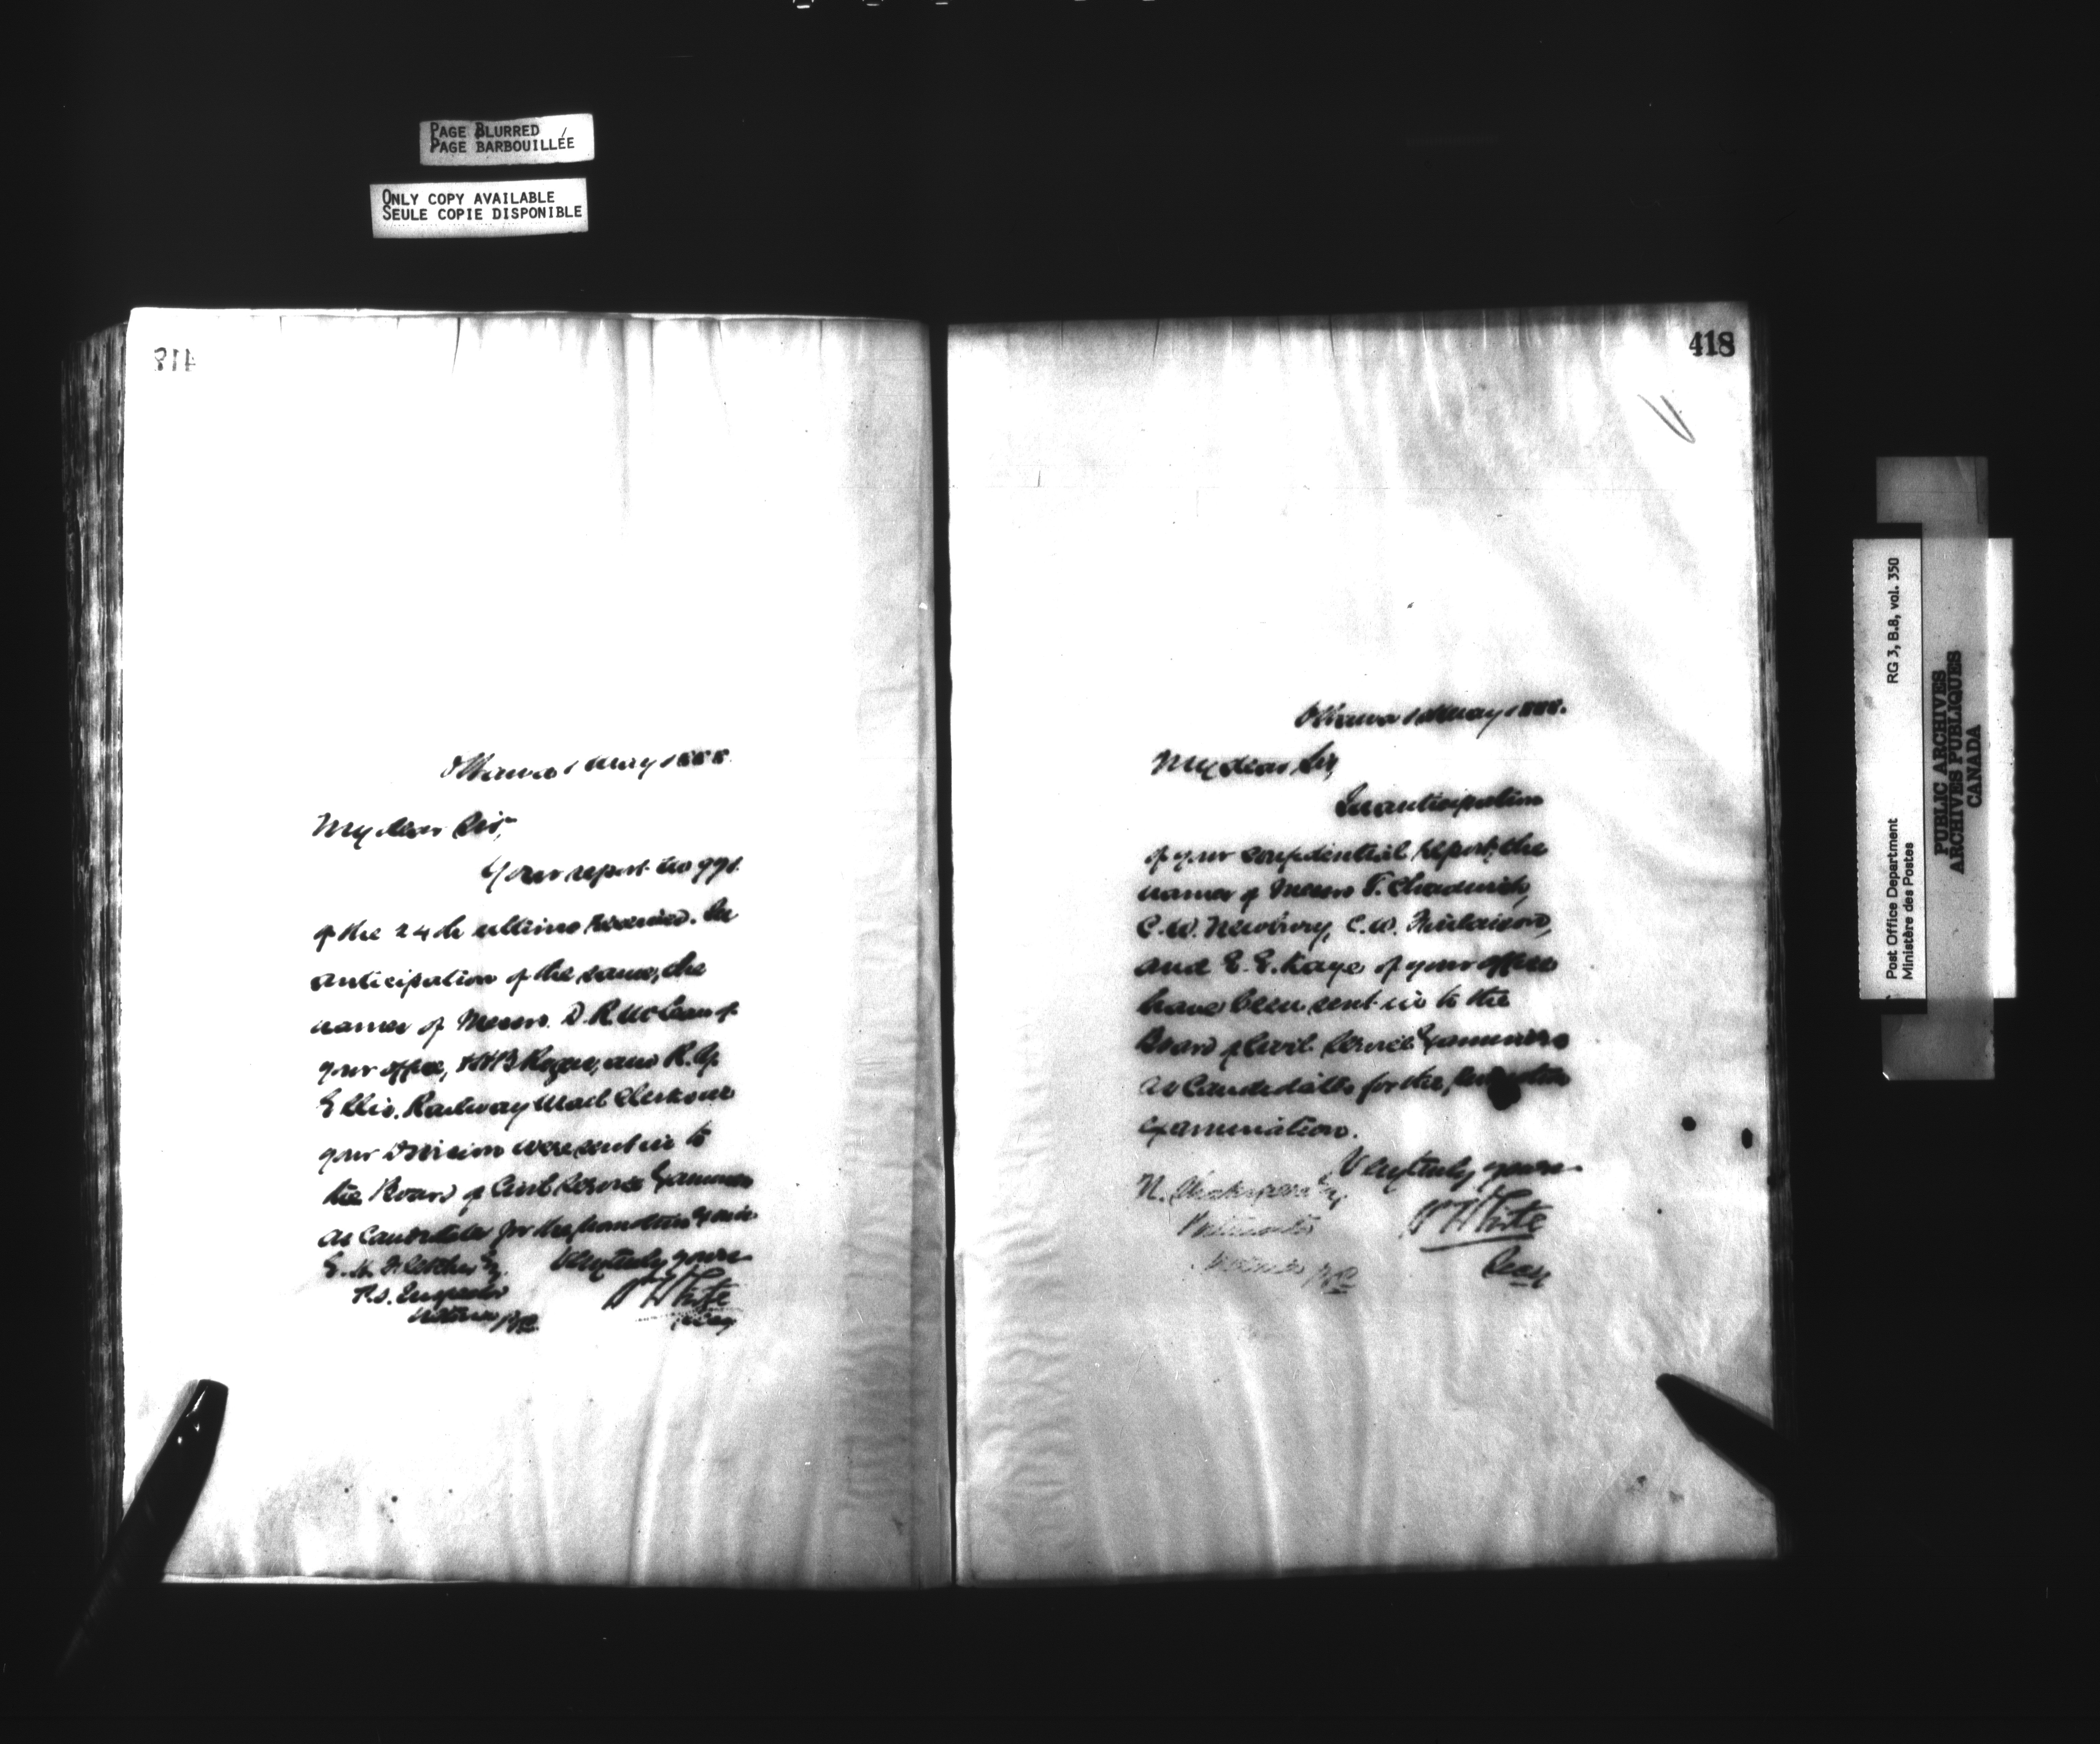 PAGE BLURRED
PAGE BARBOUILLÉE
ONLY COPY AVAILABLE
SEULE COPIE DISPONIBLE
418
Ottawa 1 May 1888.
My dear Sir,
Your report No 991
of the 24th ultimo received. In
anticipation of the same, the
names of Messrs. D. R. McLean of
your office, and R. G.
Ellis, Railway Mail Clerks on
your Division were sent in to
the Board of Civil Service Examiners
as Candidates for the promotion Exam.
E. H. Fletcher Esq. Very truly yours
P.O. Inspector Wm White
Victoria B.C. Secy
418
Ottawa 1st May 1888.
My dear Sir,
In anticipation
of your confidential report, the
names of Messrs T. Chadwick,
C. W. Newbury, C. W. Finlaison,
and E. E. Kaye of your office
have been sent in to the
Board of Civil Service Examiners
as Candidates for the promotion
examination.
Very truly yours
N. Shakespeare Esq
Wm White
Postmaster
Victoria B.C. Secy
Post Office Department RG 3, B.8, vol. 350
Ministère des Postes
PUBLIC ARCHIVES
ARCHIVES PUBLIQUES
CANADA